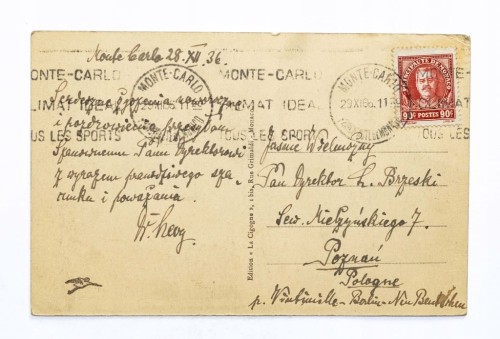 Monte Carlo 28.XII.36.
MONTE-CARLO
MONTE-CARLO
MONTE-CARLO
PRINCIPAUTE DE MONACO
ONTE-CARLO
29 XII 36
CLIMAT IDEAL
IMAT IDEAL
TOUS LES SPORTS
OUS LES SPORTS
OUS LES
90c POSTES 90c
Serdeczne życzenia noworoczne
i pozdrowienia przesyłam
Szanownemu Panu Dyrektorowi
z wyrazem prawdziwego sza-
cunku i poważania.
Edition « La Cigogne », 1 bis, Rue Grimaldi, Monaco
Jaśnie Wielmożny
Pan Dyrektor L. Brzeski
Sew. Mielżyńskiego 7.
Poznań
Pologne
p. Vintimille - Berlin - Neu Bentschen